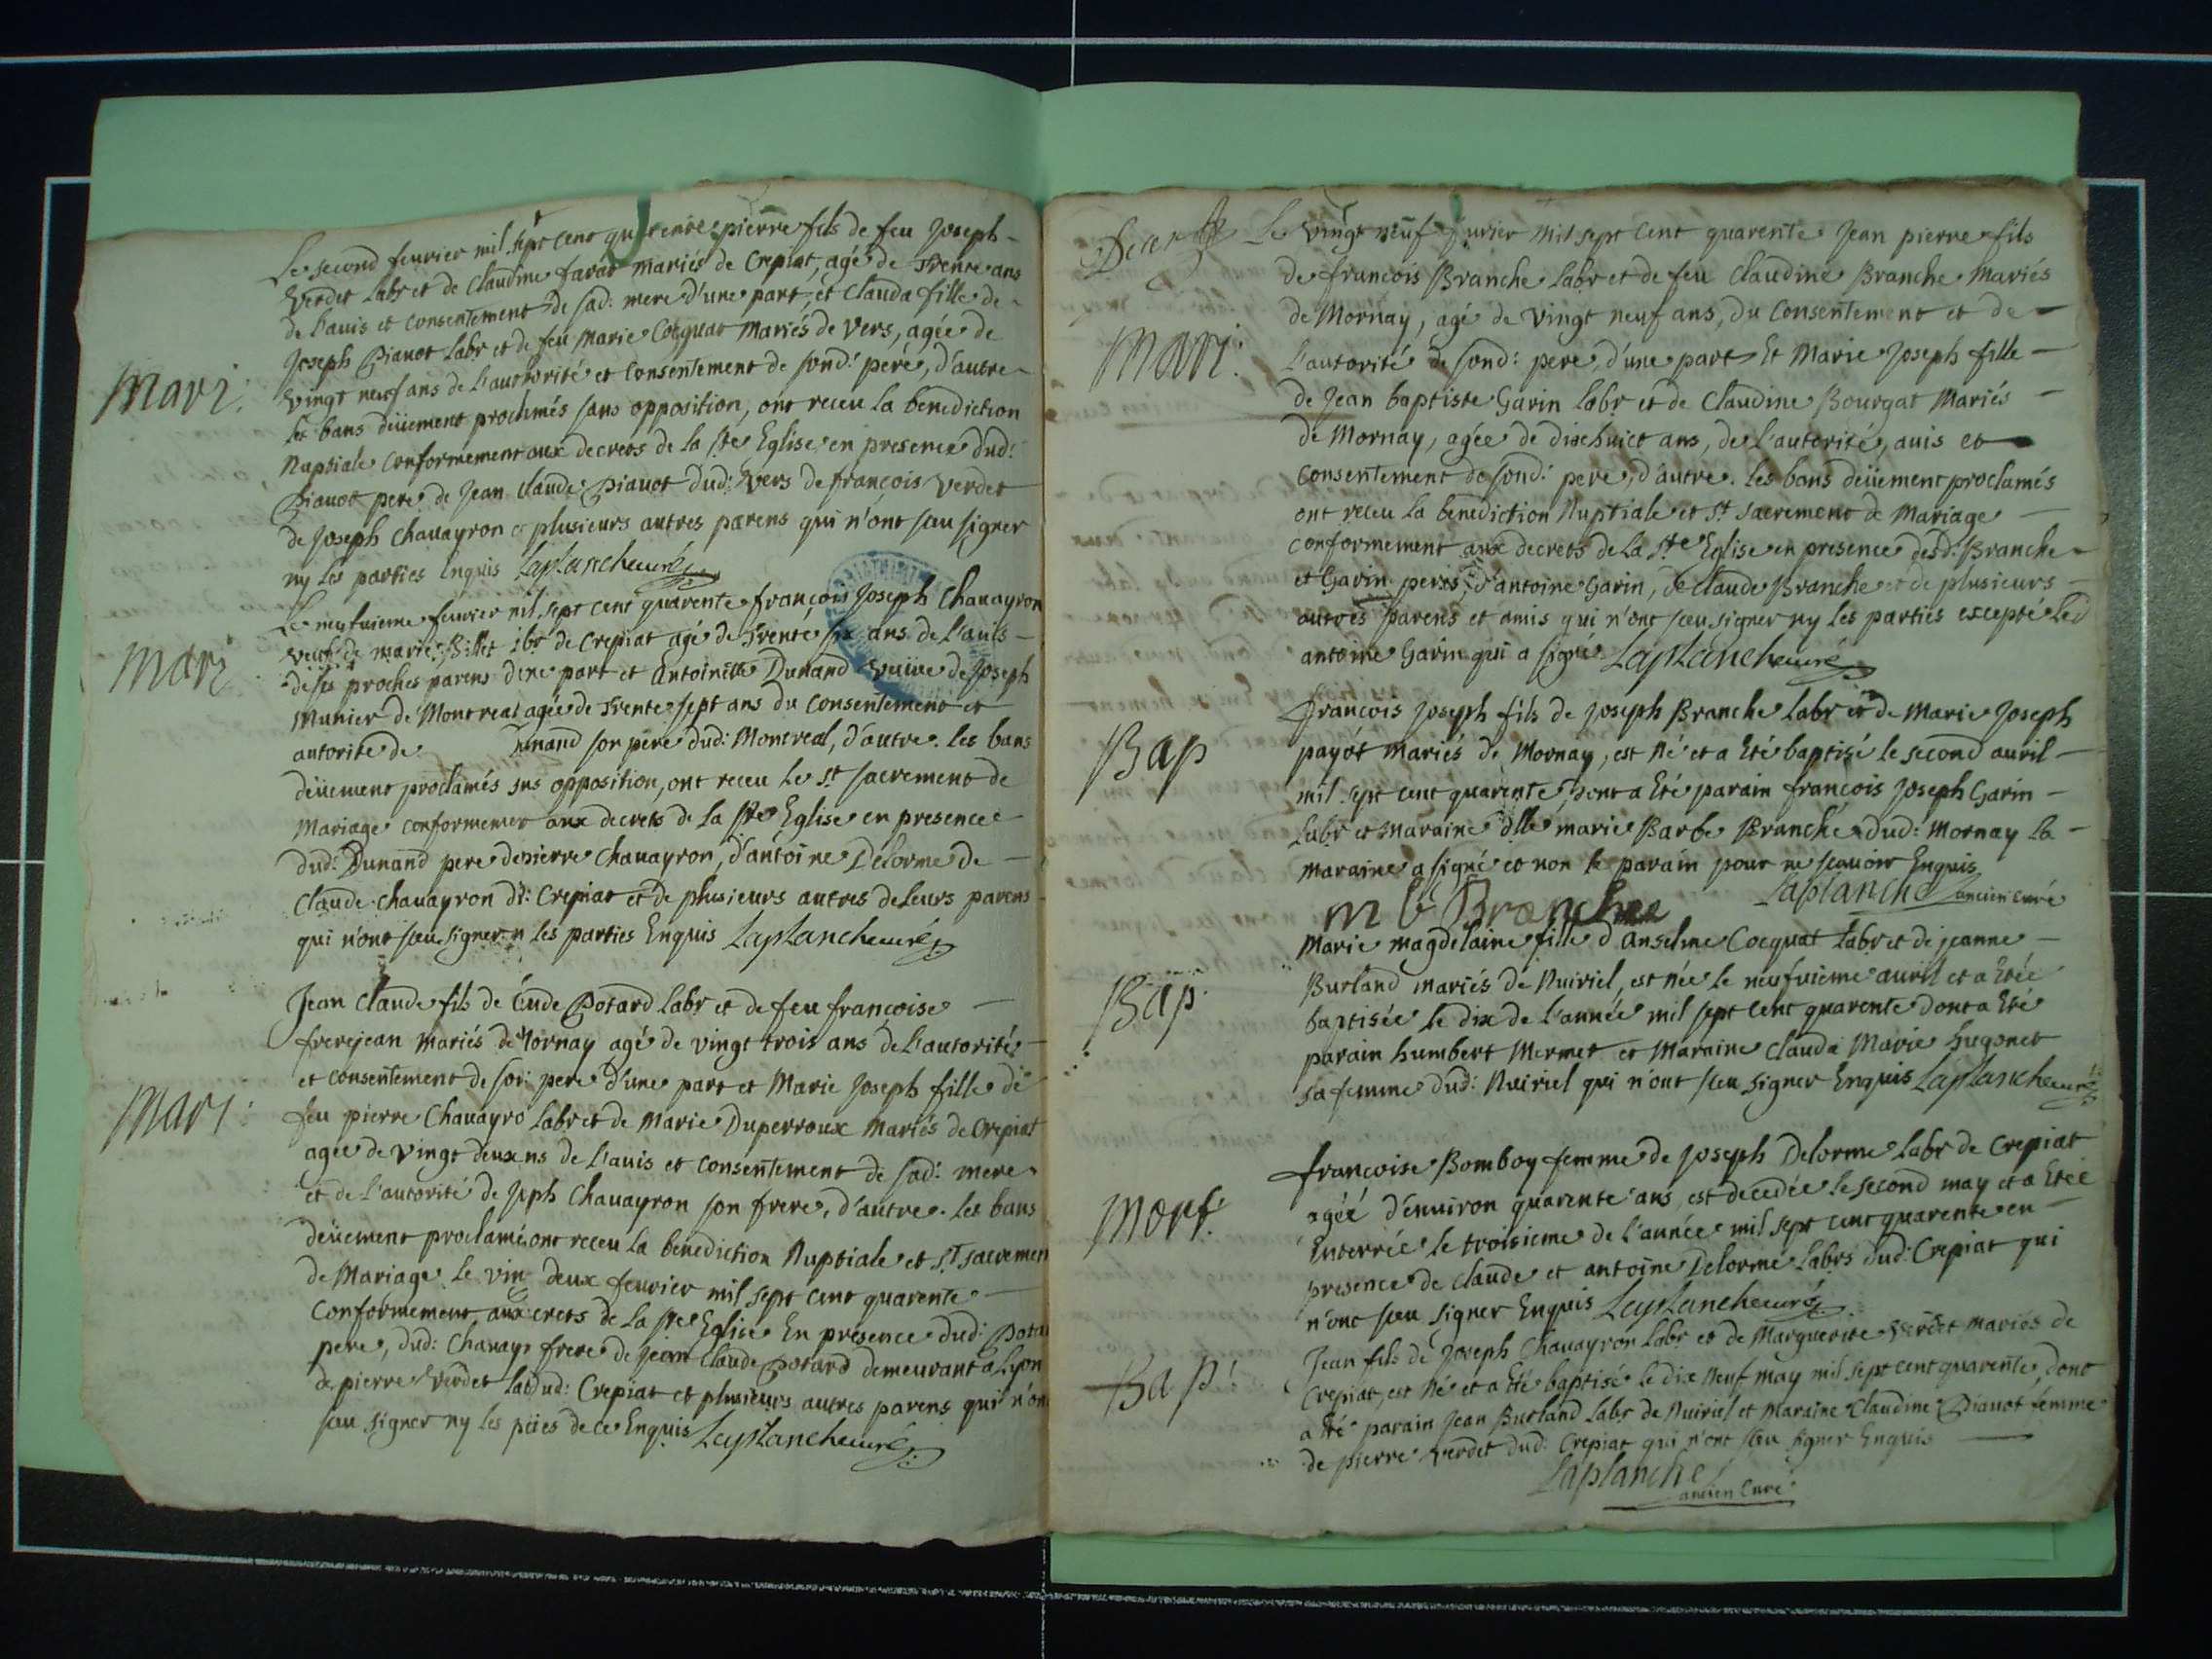 Le second feurier mil sept cent quarente pierre fils de feu Joseph
Verdet labr et de Claudine favar mariés de Crepiat, agé de trente ans
de l'auis et consentement de sad: mere d'une part, et Clauda fille de
Joseph Pianot labr et de feu Marie Cocquat Mariés de Vers, agée de
Mari:
vingt neuf ans de l'authorité et consentement de sond: pere, d'autre
les bans deüement proclmés sans opposition, ont receu la benediction
Nuptiale conformement aux decrets de la ste Eglise en presence dud:
Pianot pere de Jean claude Pianot dud: Vers de françois Verdet
de Joseph Chauayron et plusieurs autres parens qui n'ont sçeu signer
ny les parties Enquis Laplanche curé
Le neufuieme feurier mil sept cent quarente françois Joseph Chauayron
veuf de marie Billet lbr de Crepiat agé de trente six ans de l'auis
Mari
de ses proches parens dune part et Antoinette Dunand veuüe de Joseph
Munier de Montreal agée de trente sept ans du consentement et
autorite de Dunand son pere dud: Montreal, d'autre. les bans
deüement proclamés sns opposition, ont receu le st sacrement de
Mariage conformement aux decrets de la ste Eglise en presence
dud: Dunand pere de pierre Chauayron, d'antoine Delorme de
Claude Chauayron dd: Crepiat et de plusieurs autres de leurs parens
qui n'ont sçeu signer n les parties Enquis Laplanche curé
Jean Claude fils de Cude Potard labr et de feu françoise
frerejean mariés de Mornay agé de vingt trois ans de l'autorité
et consentement de son pere d'une part et Marie Joseph fille de
Mari:
feu pierre Chauayro labr et de Marie Duperroux Mariés de Crepiat
agée de vingt deux ns de l'auis et consentement de sad: mere
et de l'autorité de Jseph Chauayron son frere, d'autre. les bans
deüement proclamé ont receu la benediction Nuptiale et st sacremen
de Mariage le ving deux feurier mil sept cent quarente
conformement aux crets de la ste Eglise En presence dud: Potar
pere, dud: Chauayr frere de Jean Claude Potard demeurant a Lyon
de pierre Verdet la dud: Crepiat et plusieurs autres parens qui n'on
sçeu signer ny les pties de ce Enquis Laplanche curé
Le Vingt neuf mil sept cent quarente Jean pierre fils
de francois Branche labr et de feu Claudine Branche Mariés
de Mornay, agé de vingt neuf ans, du consentement et de
Mari:
l'autorité de sond: pere, d'une part Et Marie Joseph fille
de Jean baptiste Garin labr et de Claudine Bourgat Mariés
de Mornay, agée de dixhuict ans, de l'autorité, auis et
consentement de sond: pere, d'autre. les bans deüement proclamés
ont receu la benediction Nuptiale et st sacrement de Mariage
conformement aux decrets de la ste Eglise en presence desd: Branche
et Garin peres, d'antoine Garin, de claude Branche et de plusieurs
autres parens et amis qui n'ont sçeu signer ny les parties excepté led
antoine Garin qui a signé Laplanche curé
francois Joseph fils de Joseph Branche labr et de Marie Joseph
Bap
payot mariés de Mornay, est né et a Eté baptisé le second auril
mil sept cent quarente, dont a Eté parain francois Joseph Garin
labr et Maraine dlle marie Barbe Branche dud: Mornay la
maraine a signé et non le parain pour ne sçauoir Enquis
m b Branche Laplanche ancien curé
Marie magdelaine fille d'Anselme Cocquat labr et de jeanne
Bap
Burland mariés de Nuiriel, est née le neufuieme auril et a Etée
baptisée le dix de l'année mil sept cent quarente dont a Eté
parain humbert Mermet et Maraine Clauda Marie hugonet
sa femme dud: Nuiriel qui n'ont sçeu signer Enquis Laplanche curé
francoise Bomboy femme de Joseph Delorme labr de Crepiat
Mort:
agée d'enuiron quarente ans, est decedée le second may et a Etée
Enterrée le troisieme de l'année mil sept cent quarente en
presence de claude et antoine Delorme labrs dud: Crepiat qui
n'ont sçeu signer Enquis Laplanche curé
Jean fils de Joseph Chauayron labr et de Marguerite Verdet mariés de
Bap:
Crepiat, est né et a Eté baptisé le dix neuf may mil sept cent quarente, dont
a Eté parain Jean Burland labr de Nuiriel et Maraine Claudine Pianot femme
de pierre Verdet dud: Crepiat qui n'ont sçeu signer Enquis
Laplanche
ancien Curé